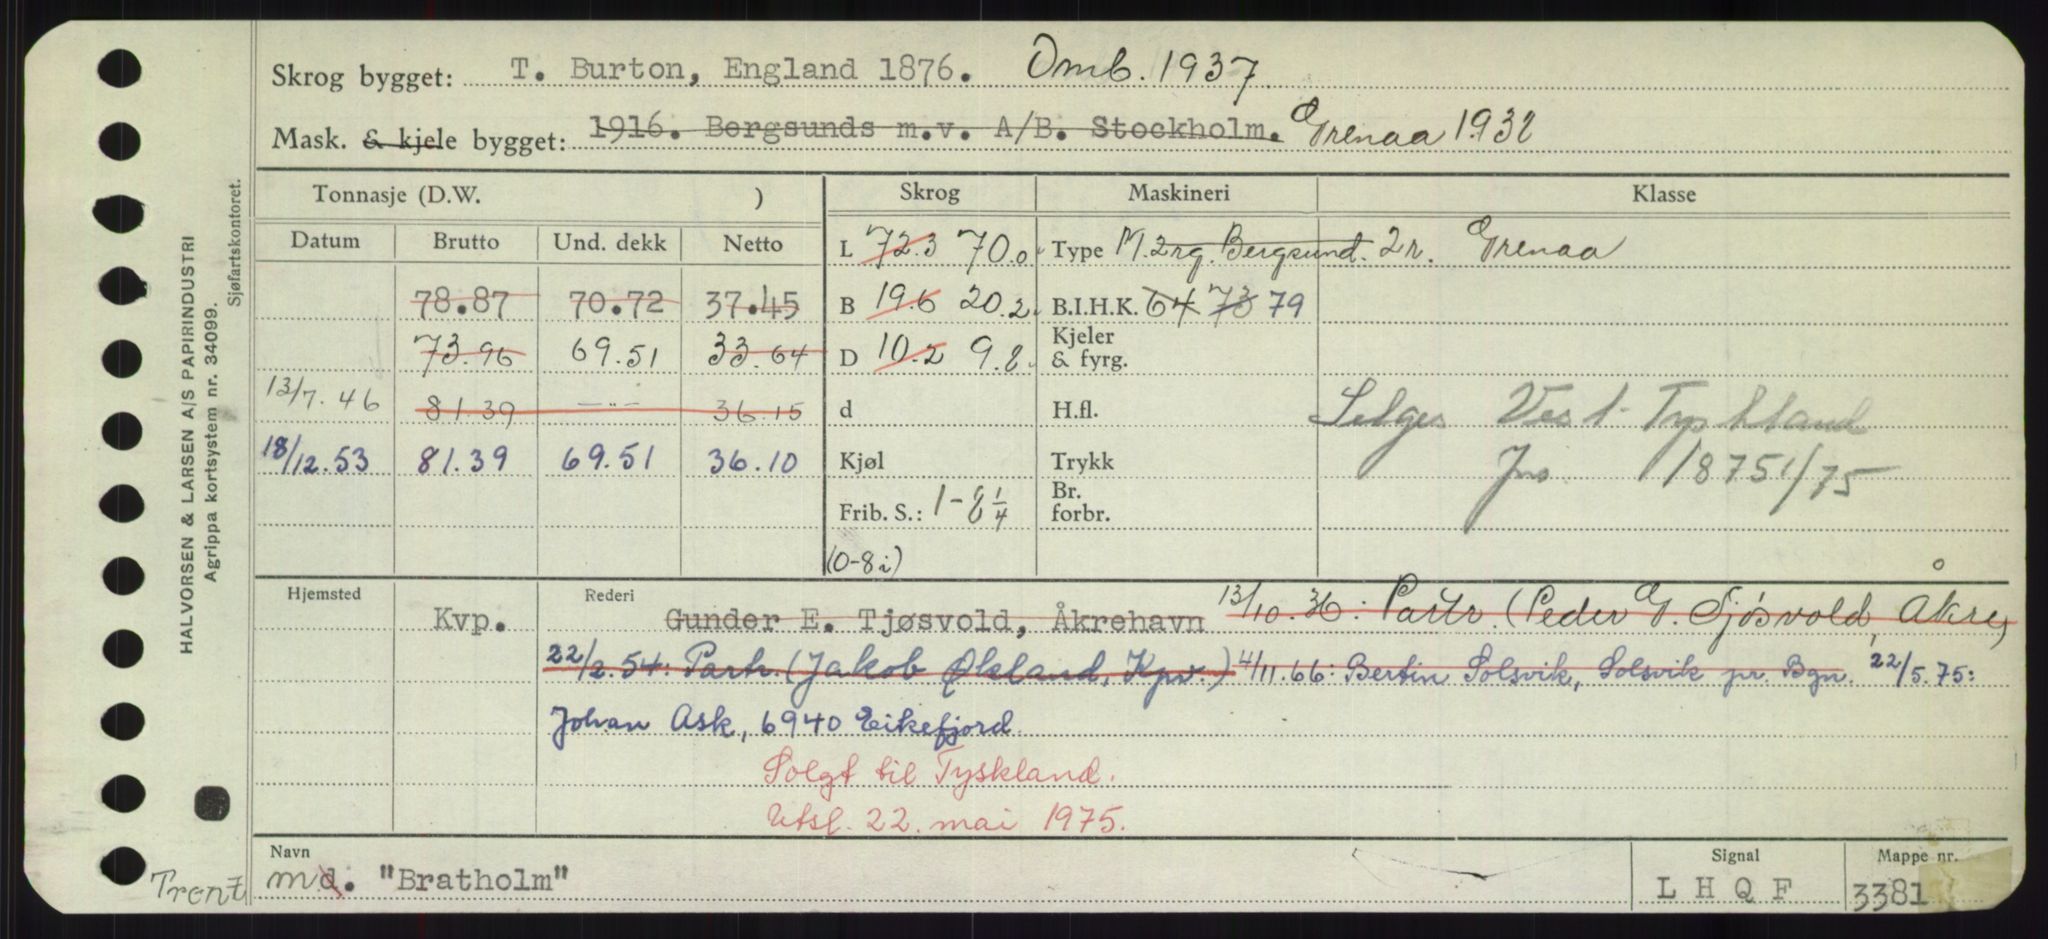 Skrog bygget: T. Burton, England 1876. Omb. 1937
Mask. & kjele bygget: 1916. Bergsunds m.v. A/B. Stockholm. Grenaa 1932
Tonnasje (D.W. ) Skrog Maskineri Klasse
Datum Brutto Und. dekk Netto
L 72.3 70.0 Type M. 2rg. Bergsund. 2r. Grenaa
78.87 70.72 37.45 B 19.6 20.2 B.I.H.K. 64 73 79
73.96 69.51 33.64 D 10.2 9.8 Kjeler & fyrg.
13/7.46 81.39 —"— 36.15 d H.fl. Selges Vest-Tyskland
18/12.53 81.39 69.51 36.10 Kjøl Trykk Jnr. 18751/75
Frib. S.: 1-8 1/4 Br. forbr.
(0-8i)
Hjemsted Rederi
Kvp. Gunder E. Tjøsvold, Åkrehavn 13/10.36: Partr. (Peder G. Sjøsvold, Åkre)
22/2.54: Partr. (Jakob Økland, Kpv.) 4/11.66: Bertin Solsvik, Solsvik pr. Bgn. 22/5.75:
Johan Ask, 6940 Eikefjord.
Solgt til Tyskland.
Utsl. 22. mai 1975.
Navn Signal Mappe nr.
Trent md. "Bratholm" L H Q F 3381
HALVORSEN & LARSEN A/S PAPIRINDUSTRI
Agrippa kortsystem nr. 34099.
Sjøfartskontoret.